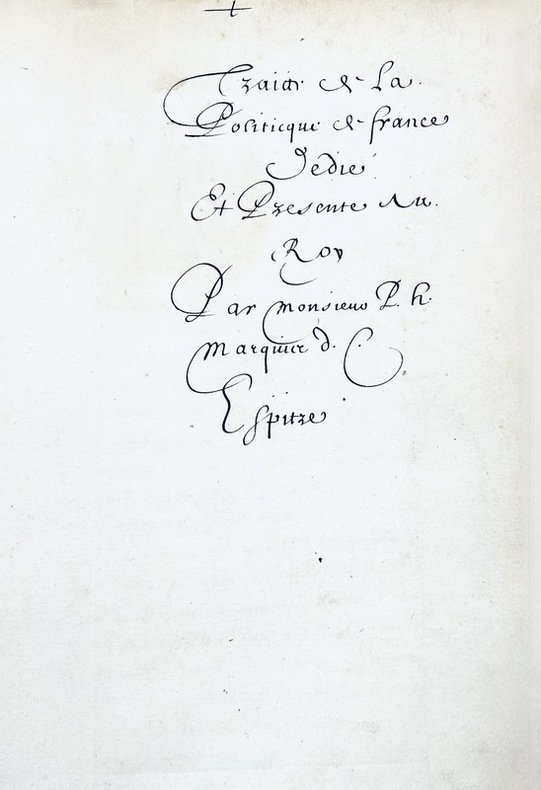 Traicté de la
Politicque de france
Dedié
Et Presenté Au
Roy
Par Monsieur P. h.
Marquis d. C.
Espitre